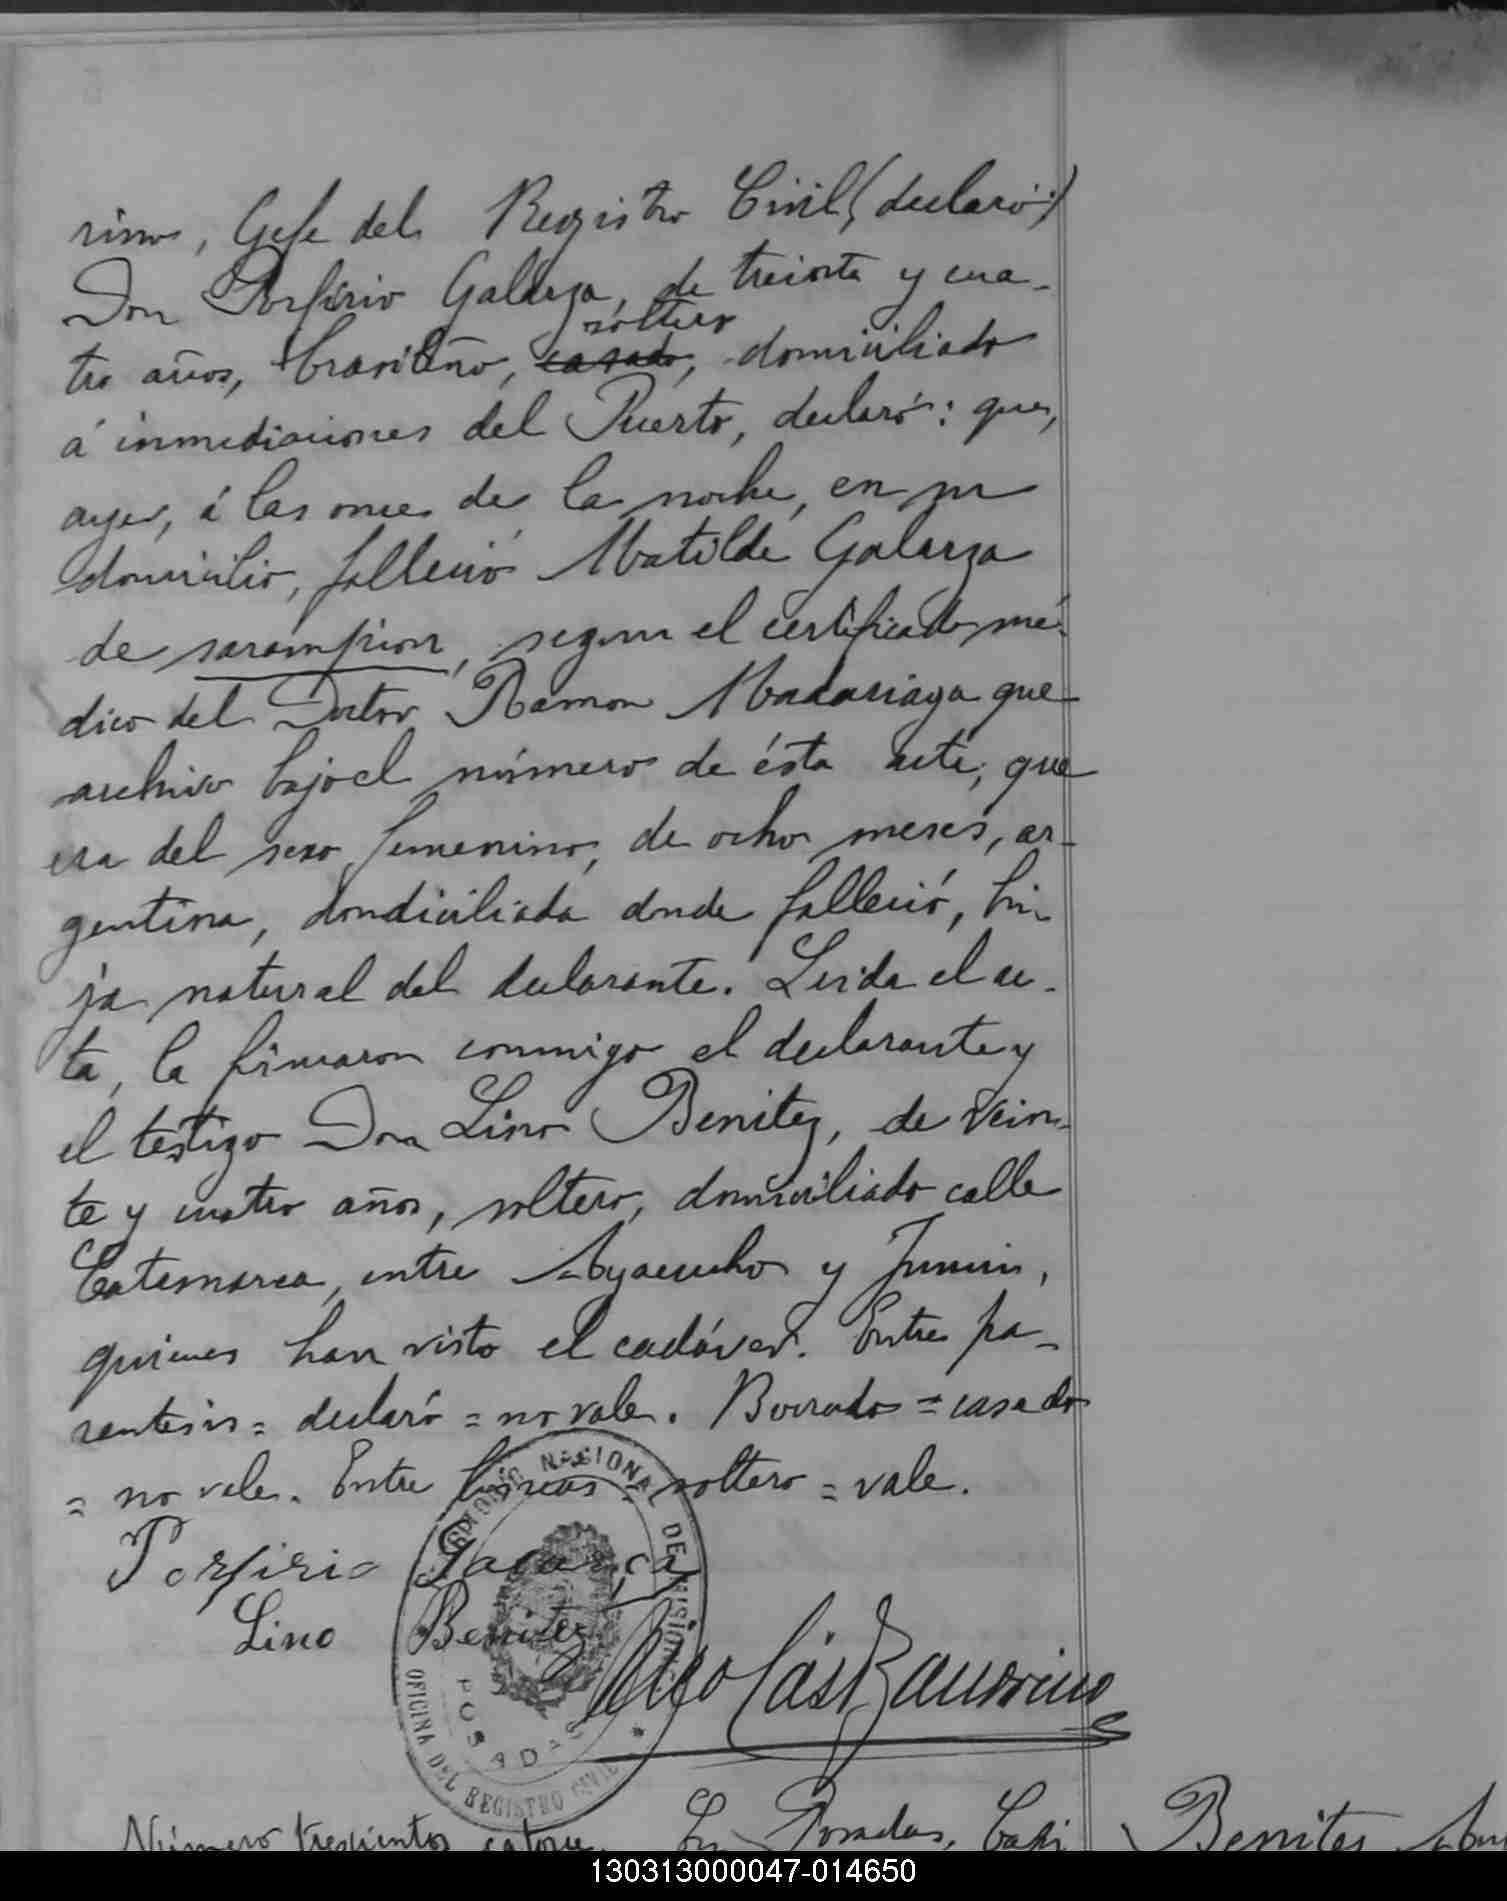 rino, Gefe del Registro Civil, (declaró:)
Don Porfirio Galarza, de treinta y cua-
soltero
tro años, brasileño, casado, domiciliado
á inmediaciones del Puerto, declaró: que,
ayer, á las once de la noche, en su
domicilio, falleció Matilde Galarza
de sarampion, segun el certificado mé-
dico del Doctor Ramon Madariaga que
archivo bajo el número de ésta acta; que
era del sexo femenino, de ocho meses, ar-
gentina, domiciliada donde falleció, hi-
ja natural del declarante. Leida el ac-
ta, la firmaron conmigo el declarante y
el testigo Don Lino Benitez, de vein-
te y cuatro años, soltero, domiciliado calle
Catamarca, entre Ayacucho y Junin,
quienes han visto el cadáver. Entre pa-
rentesis = declaró = no vale. Borrado = casado
= no vale. Entre lineas = soltero = vale.
Porfirio Galarza
Lino Benitez
NACIONAL DE MISIONES
POSADAS
OFICINA DEL REGISTRO CIVIL
Número trescientos catorce. En Posadas, Capi
Benites
130313000047-014650